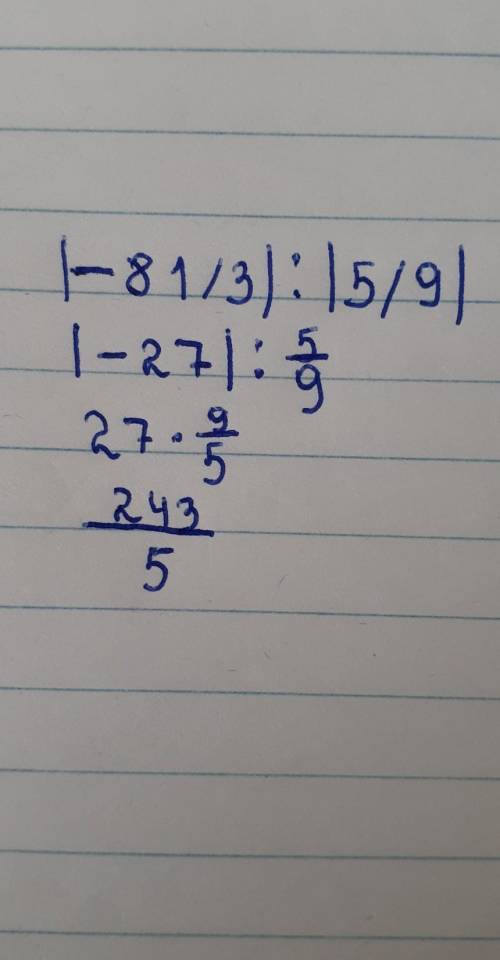 |-81/3|:|5/9|
|-27|:5/9
27·9/5
243/5